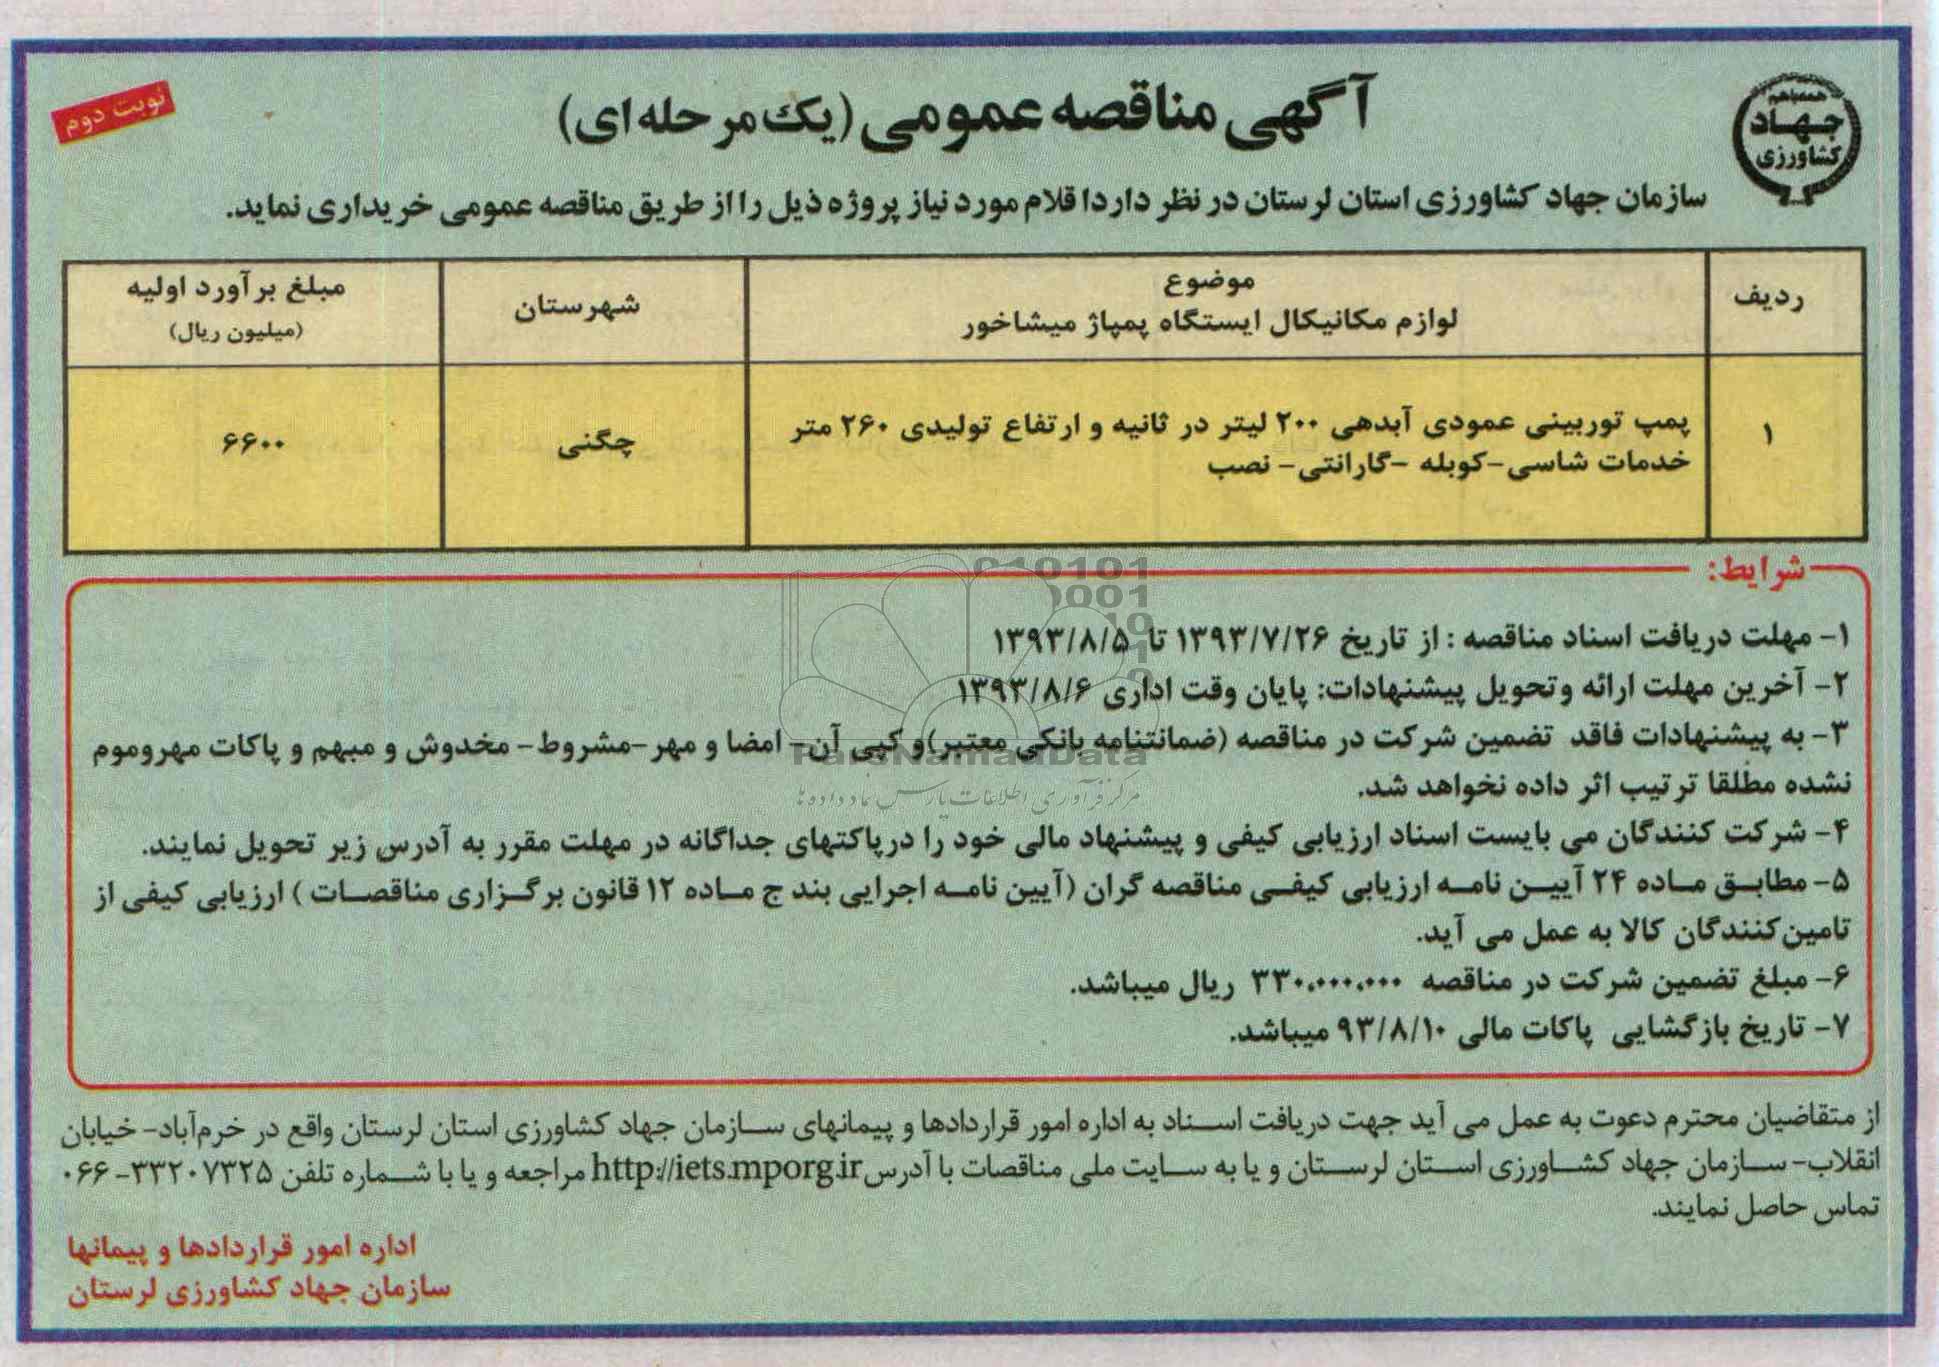 همه با هم
جهاد
کشاورزی
آگهی مناقصه عمومی (یک مرحله ای)
نوبت دوم
سازمان جهاد کشاورزی استان لرستان در نظر دارد اقلام مورد نیاز پروژه ذیل را از طریق مناقصه عمومی خریداری نماید.
ردیف
موضوع
لوازم مکانیکال ایستگاه پمپاژ میشاخور
شهرستان
مبلغ برآورد اولیه
(میلیون ریال)
۱
پمپ توربینی عمودی آبدهی ۲۰۰ لیتر در ثانیه و ارتفاع تولیدی ۲۶۰ متر
خدمات شاسی-کوبله -گارانتی- نصب
چگنی
۶۶۰۰
شرایط:
۱- مهلت دریافت اسناد مناقصه : از تاریخ ۱۳۹۳/۷/۲۶ تا ۱۳۹۳/۸/۵
۲- آخرین مهلت ارائه وتحویل پیشنهادات: پایان وقت اداری ۱۳۹۳/۸/۶
۳- به پیشنهادات فاقد تضمین شرکت در مناقصه (ضمانتنامه بانکی معتبر)و کپی آن- امضا و مهر-مشروط- مخدوش و مبهم و پاکات مهروموم
نشده مطلقا ترتیب اثر داده نخواهد شد.
۴- شرکت کنندگان می بایست اسناد ارزیابی کیفی و پیشنهاد مالی خود را درپاکتهای جداگانه در مهلت مقرر به آدرس زیر تحویل نمایند.
۵- مطابق ماده ۲۴ آیین نامه ارزیابی کیفی مناقصه گران (آیین نامه اجرایی بند ج ماده ۱۲ قانون برگزاری مناقصات ) ارزیابی کیفی از
تامین‌کنندگان کالا به عمل می آید.
۶- مبلغ تضمین شرکت در مناقصه ۳۳۰،۰۰۰،۰۰۰ ریال میباشد.
۷- تاریخ بازگشایی پاکات مالی ۹۳/۸/۱۰ میباشد.
010101
0001
10
1
0
ParsNamadData
مرکز فرآوری اطلاعات پارس نماد داده ها
از متقاضیان محترم دعوت به عمل می آید جهت دریافت اسناد به اداره امور قراردادها و پیمانهای سازمان جهاد کشاورزی استان لرستان واقع در خرم‌آباد- خیابان
انقلاب- سازمان جهاد کشاورزی استان لرستان و یا به سایت ملی مناقصات با آدرس http://iets.mporg.ir مراجعه و یا با شماره تلفن ۳۳۲۰۷۳۲۵-۰۶۶
تماس حاصل نمایند.
اداره امور قراردادها و پیمانها
سازمان جهاد کشاورزی لرستان